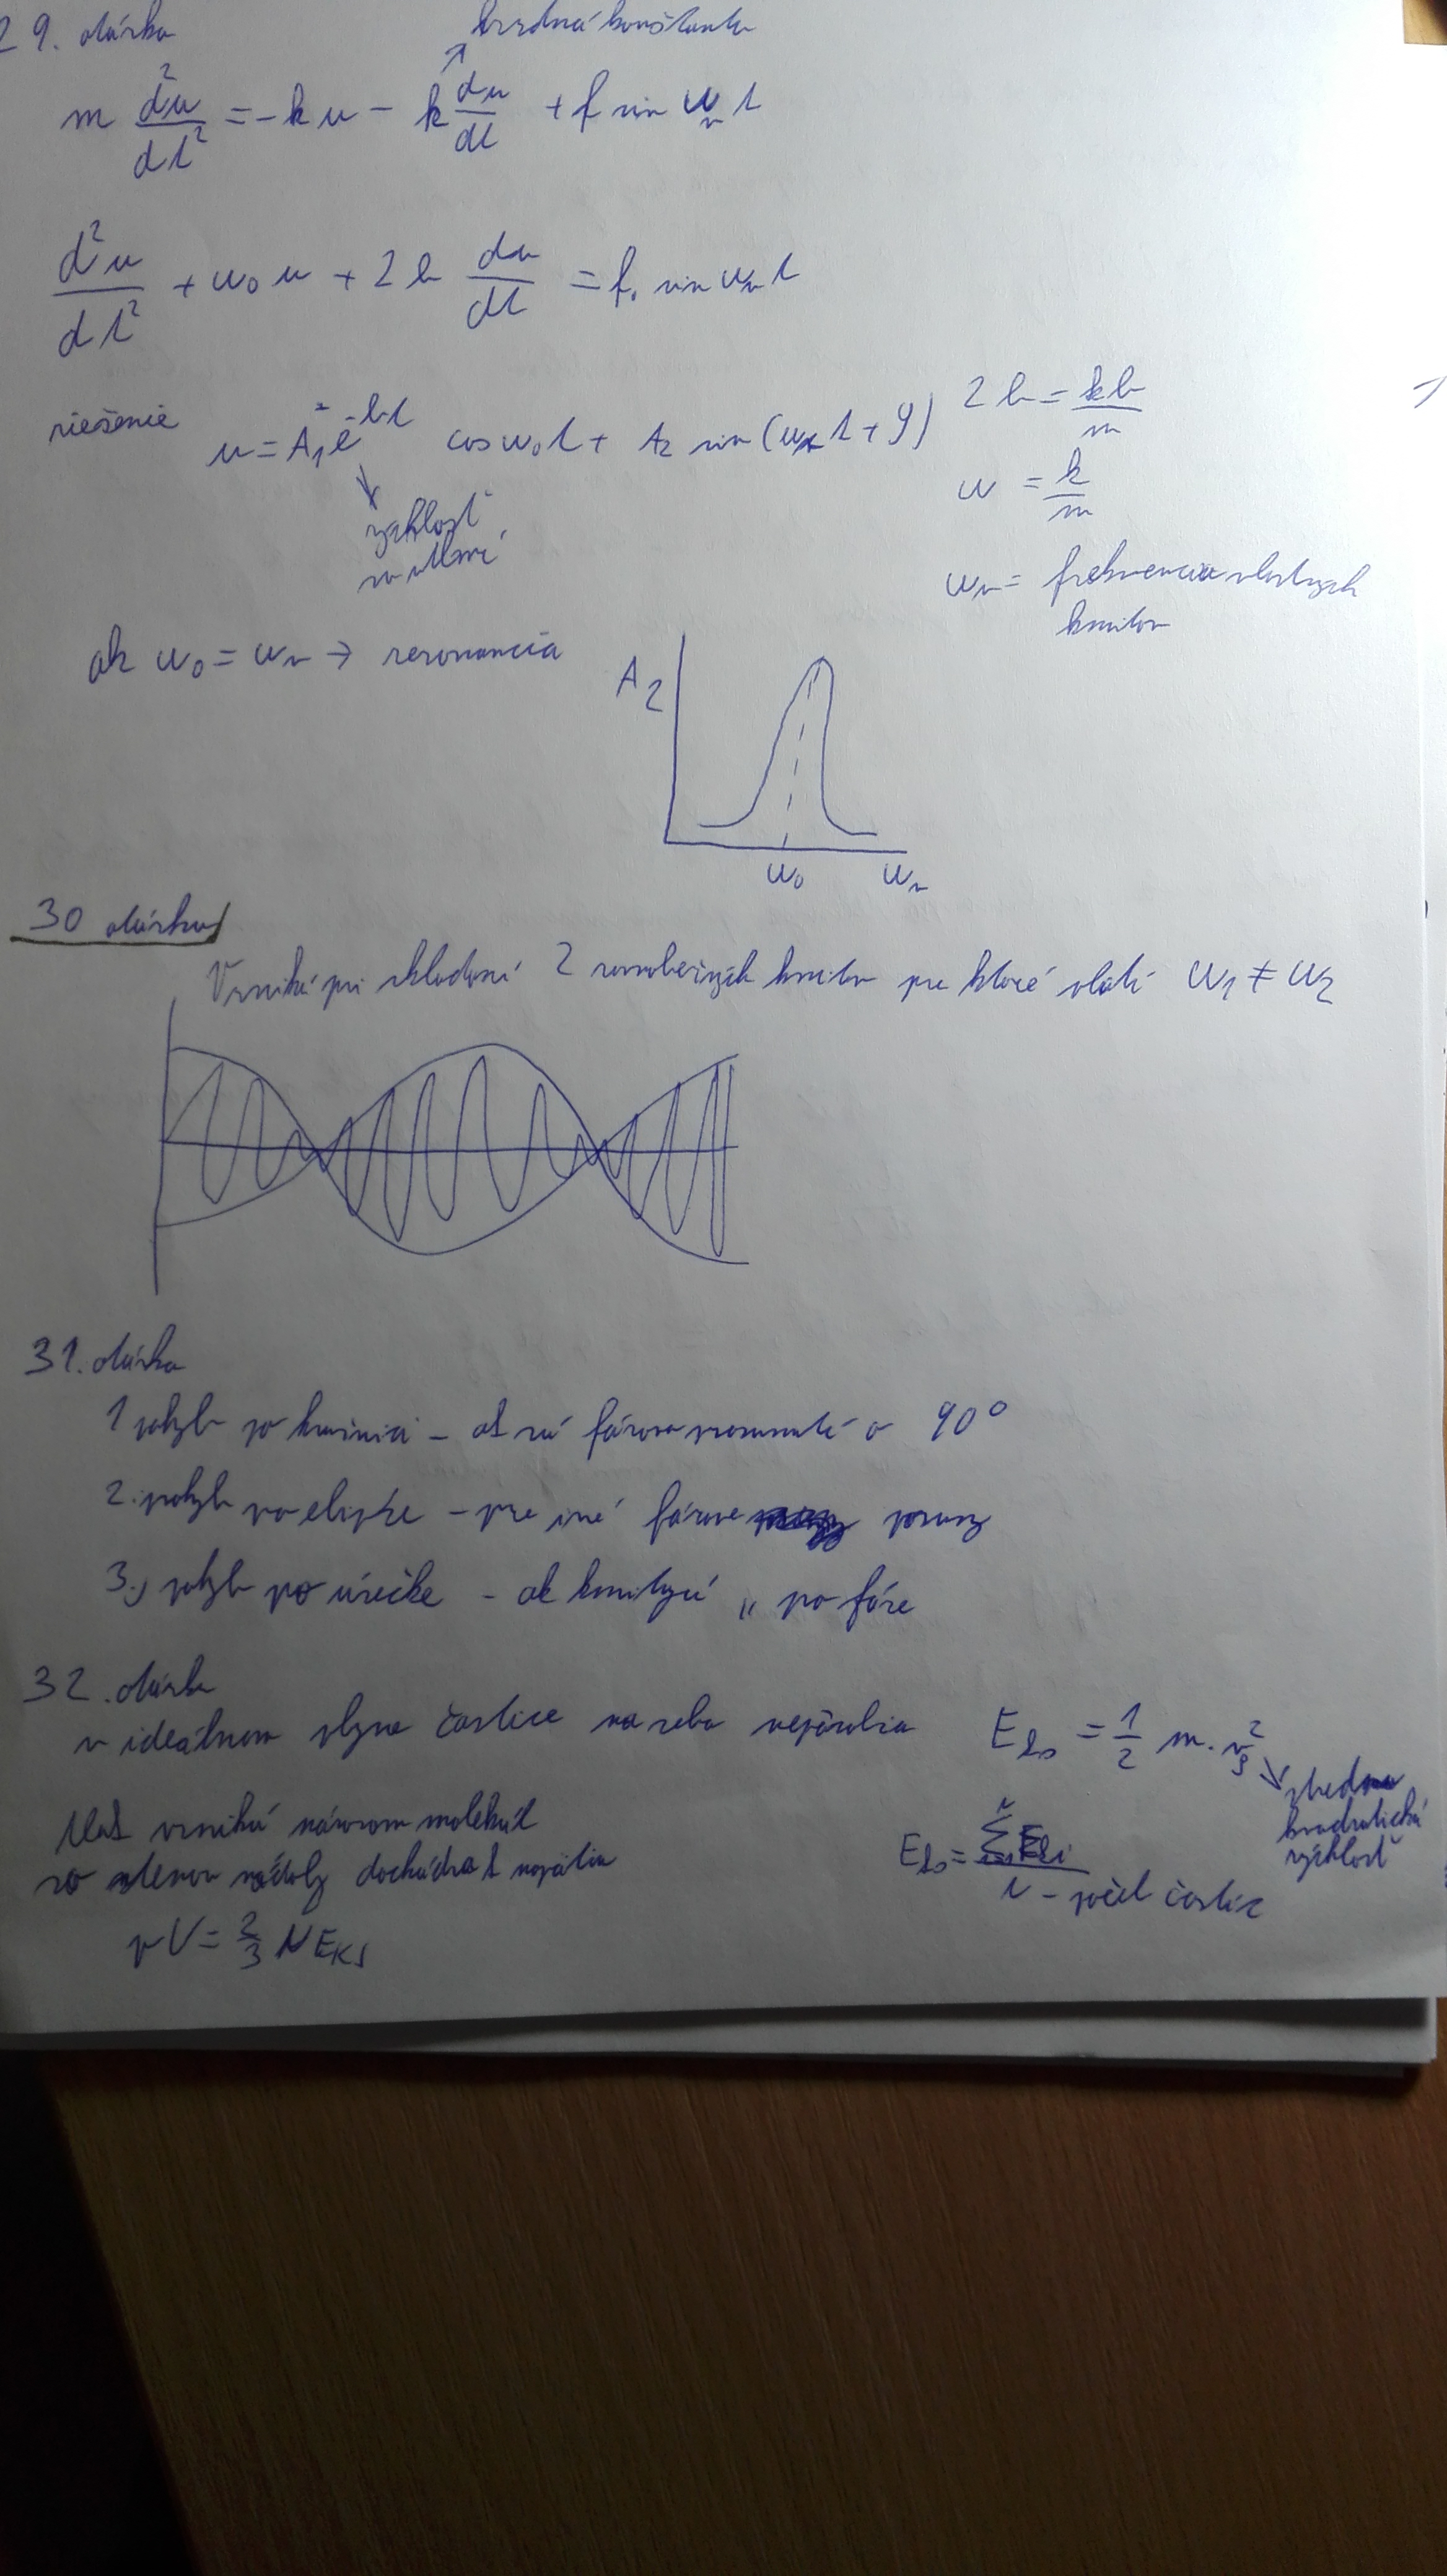 29. otázka
brzdná konštanta
m d²u/dt² = -k u - k du/dt + f sin ωᵥ t
d²u/dt² + ω₀ u + 2 b du/dt = f. sin ωᵥ t
riešenie u = A₁ e^-bt cos ω₀ t + A₂ sin (ωᵥ t + φ)
2 b = kb/m
ω = k/m
rýchlosť
ωᵥ = frekvencia vlastných
kmitov
ak ω₀ = ωᵥ → rezonancia
A₂
ω₀ ωᵥ
30 otázka
Vzniká pri skladaní 2 rovnobežných kmitov pre ktoré platí ω₁ ≠ ω₂
31. otázka
1 pohyb po kružnici - ak sú fázovo posunuté o 90°
2. pohyb po elipse - pre iné fázové posuny
3.) pohyb po úsečke - ak kmitajú „ po fáze
32. otázka
v ideálnom plyne častice na seba nepôsobia
E ks = 1/2 m. v²s
stredná
kvadratická
rýchlosť
tlak vzniká nárazom molekúl
so stenou nádoby dochádza k
E ks = Σ Eki / n - počet častíc
pV = 2/3 N EKS